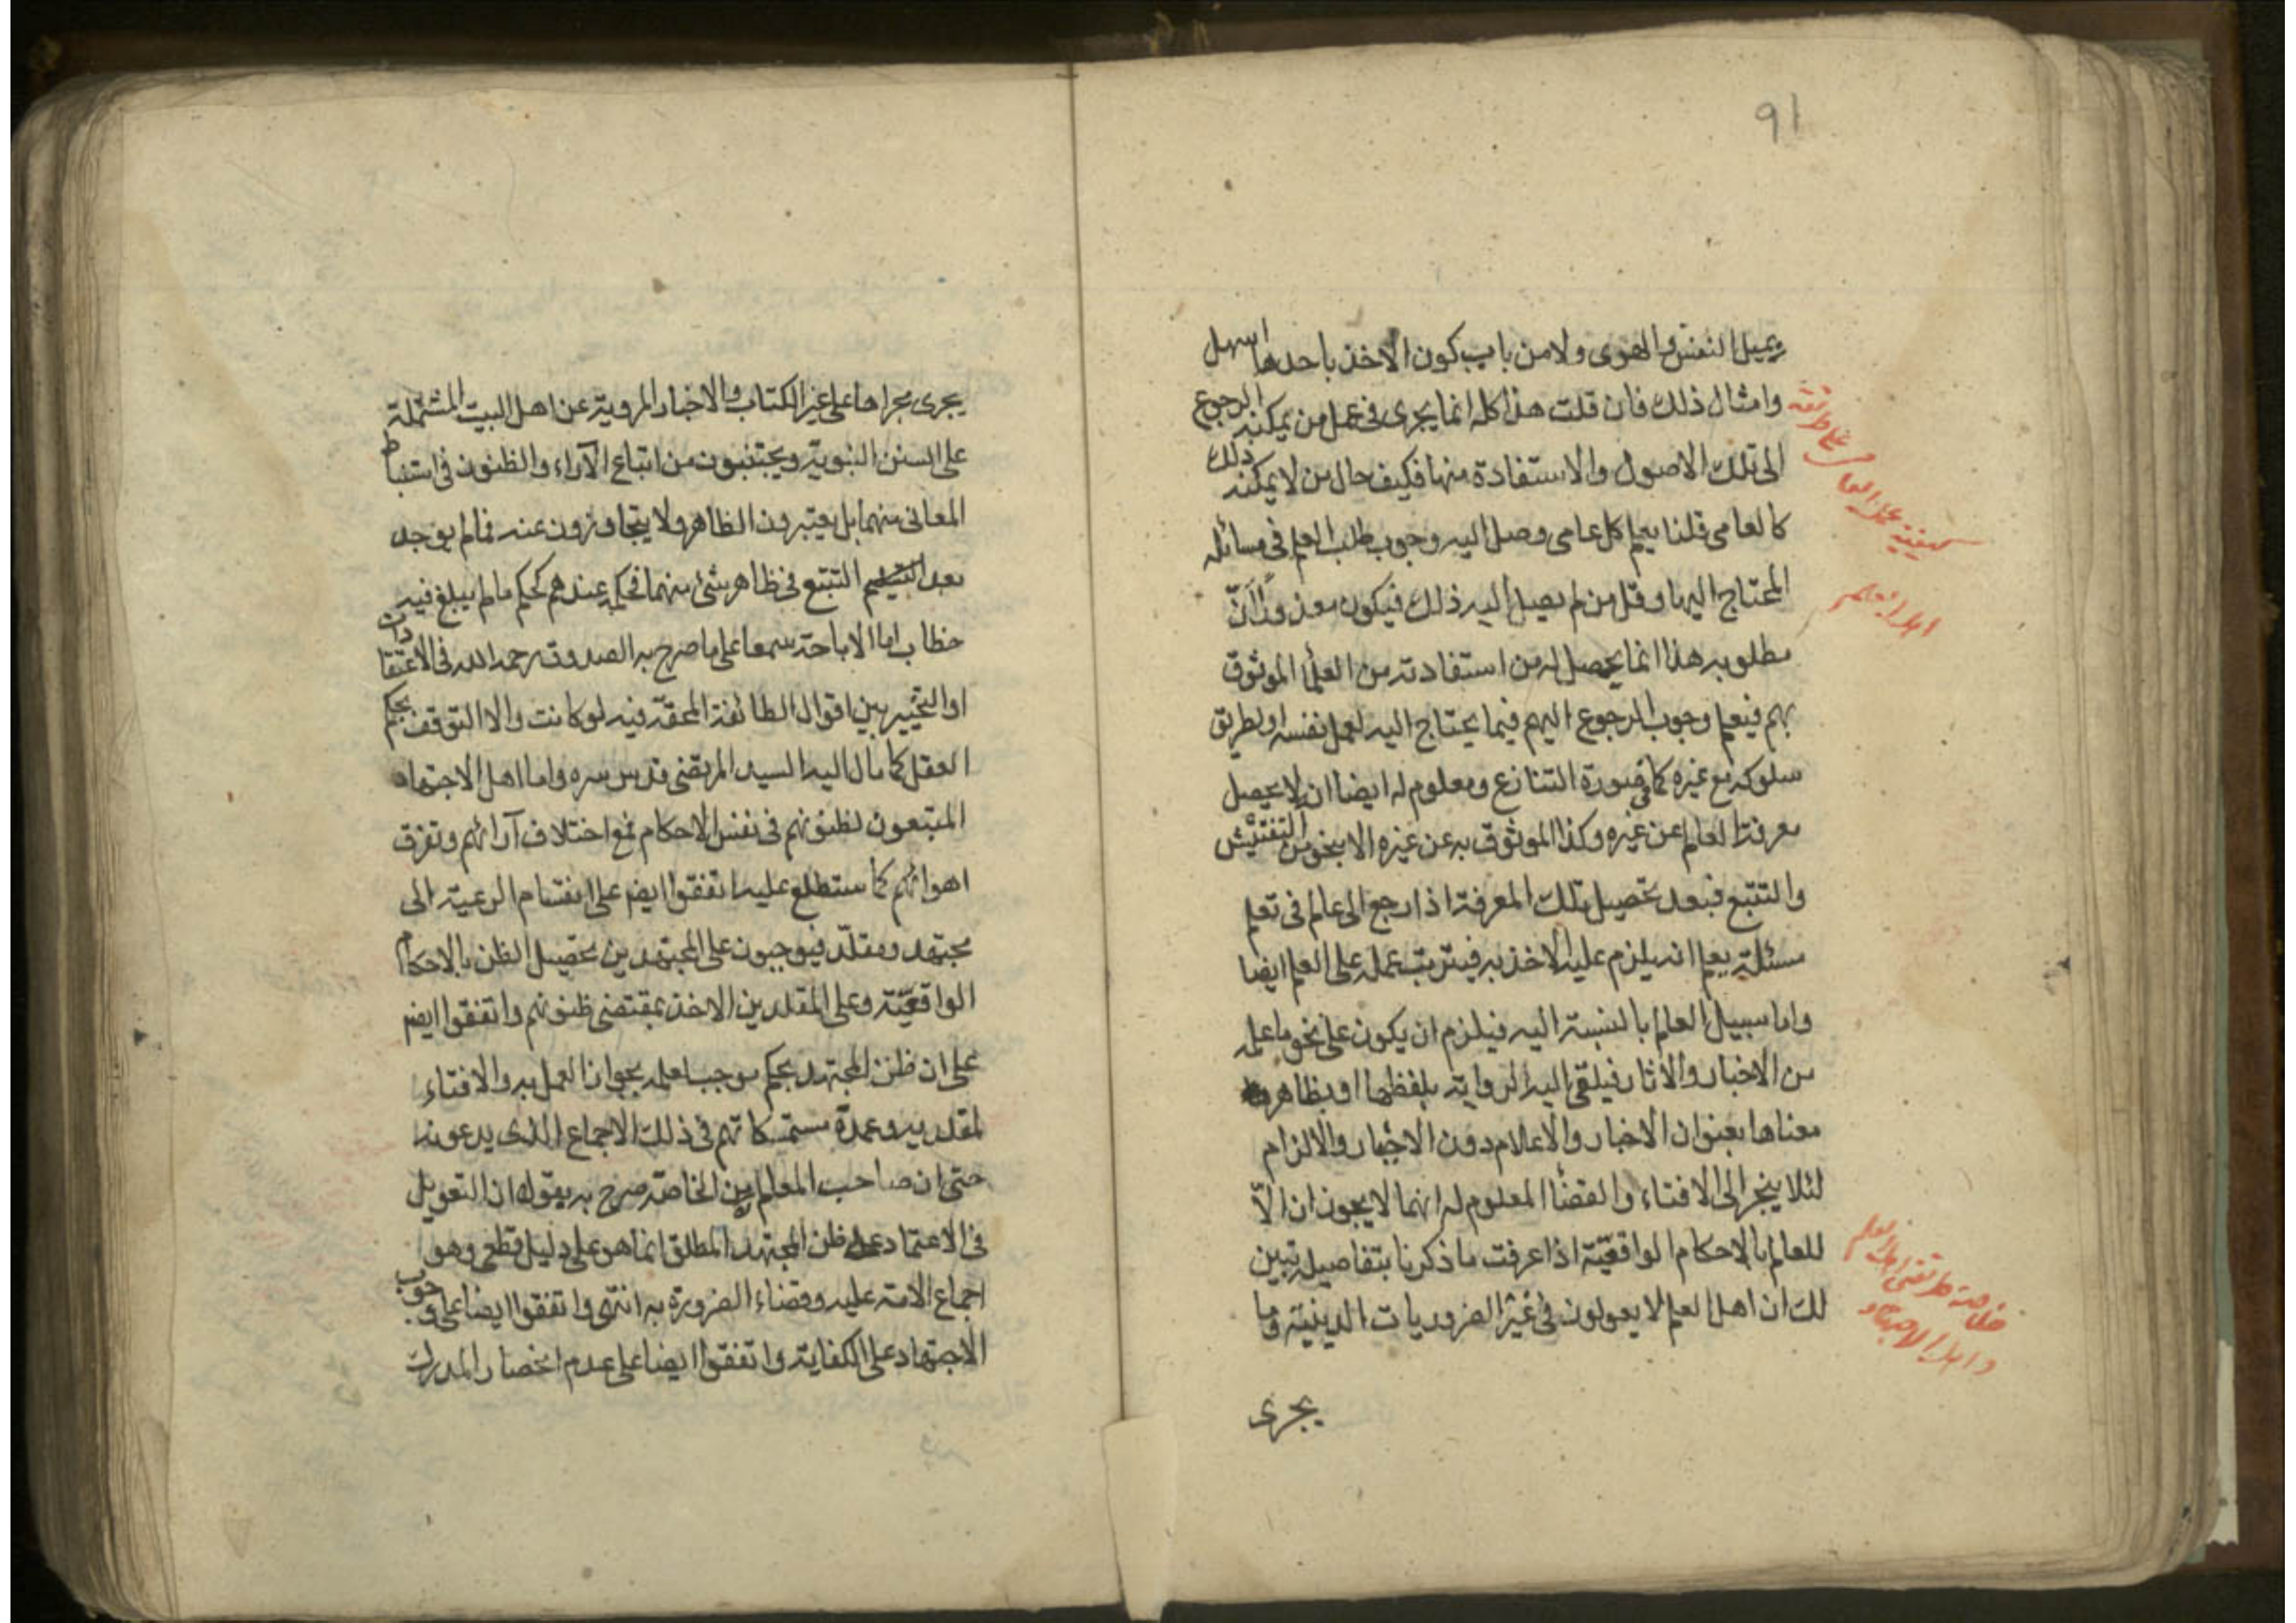 91
وبميل النفس والهوى ولا من باب كون الاخذ باحدها اسهل
وامثال ذلك فان قلت هذا كله انما يجرى فى عمل من يمكنه الرجوع
الى تلك الاصول والاستفادة منها فكيف حال من لا يمكنه ذلك
كالعامى قلنا يعلم كل عامى وصل اليه وجوب طلب العلم فى مسائله
المحتاج اليها وقل من لم يصل اليه ذلك فيكون معذورا ان
مطلوبه هذا انما يحصل له من استفادته من العلما الموثوق
بهم فيعلم وجوب الرجوع اليهم فيما يحتاج اليه لعمل نفسه او طريق
سلوكه مع غيره كما فى صورة التنازع ومعلوم له ايضا ان لا يحصل
معرفة العالم عن غيره وكذا الموثوق به عن غيره الا بنحو من التفتيش
والتتبع فبعد تحصيل تلك المعرفة اذا رجع الى عالم فى تعلم
مسئلة يعلم انه يلزم عليه الاخذ به فيترتب عمله على العلم ايضا
واما سبيل العالم بالنسبة اليه فيلزم ان يكون على نحو ما علمه
من الاخبار والاثار فيلقى اليه الرواية بلفظها او بظاهر
معناها بعنوان الاخبار والاعلام دون الاجبار والالزام
لئلا ينجر الى الافتاء والقضا المعلوم له انهما لا يجوزان الّا
للعالم بالاحكام الواقعيّة اذا عرفت ما ذكرنا بتفاصيله تبين
لك ان اهل العلم لا يعولون فى غير الضروريات الدينية وما
يجرى
كيفية عمل العامى على طريقة
اهل العلم
خلاصة طريقتى اهل العلم
واهل الاجتهاد
يجرى مجراها على غير الكتاب والاخبار المروية عن اهل البيت المشتملة
على السنن النبوية ويجتنبون من اتباع الآراء والظنون فى استنباط
المعانى منهما بل يعتبرون الظاهر ولا يتجاوزون عنه فما لم يوجد
بعد التتبع فى ظاهر شئ منهما فحكمه عندهم كحكم ما لم يبلغ فيه
خطاب اما الاباحة سمعا على ما صرح به الصدوق رحمه الله فى الاعتقادات
او التخيير بين اقوال الطائفة المحقّة فيه لو كانت والا التوقف بحكم
العقل كما مال اليه السيد المرتضى قدس سره واما اهل الاجتهاد
المتبعون لظنونهم فى نفس الاحكام فمع اختلاف آرائهم وتفرق
اهوائهم كما ستطلع عليه اتفقوا ايضم على انقسام الرعية الى
مجتهد ومقلّد فيوجبون على المجتهدين تحصيل الظن بالاحكام
الواقعيّة وعلى المقلدين الاخذ بمقتضى ظنونهم واتفقوا ايضم
على ان ظن المجتهد بحكم موجب لعلمه بجواز العمل به والافتاء
لمقلديه وعمدة مستمسكاتهم فى ذلك الاجماع الذى يدعونه
حتى ان صاحب المعالم من الخاصّة صرح به بقوله ان التعويل
فى الاعتماد على ظن المجتهد المطلق انما هو على دليل قطعى وهو
اجماع الامة عليه وقضاء الضرورة به انتهى واتفقوا ايضا على وجوب
الاجتهاد على الكفاية واتفقوا ايضا على عدم انحصار المدرك
فيه